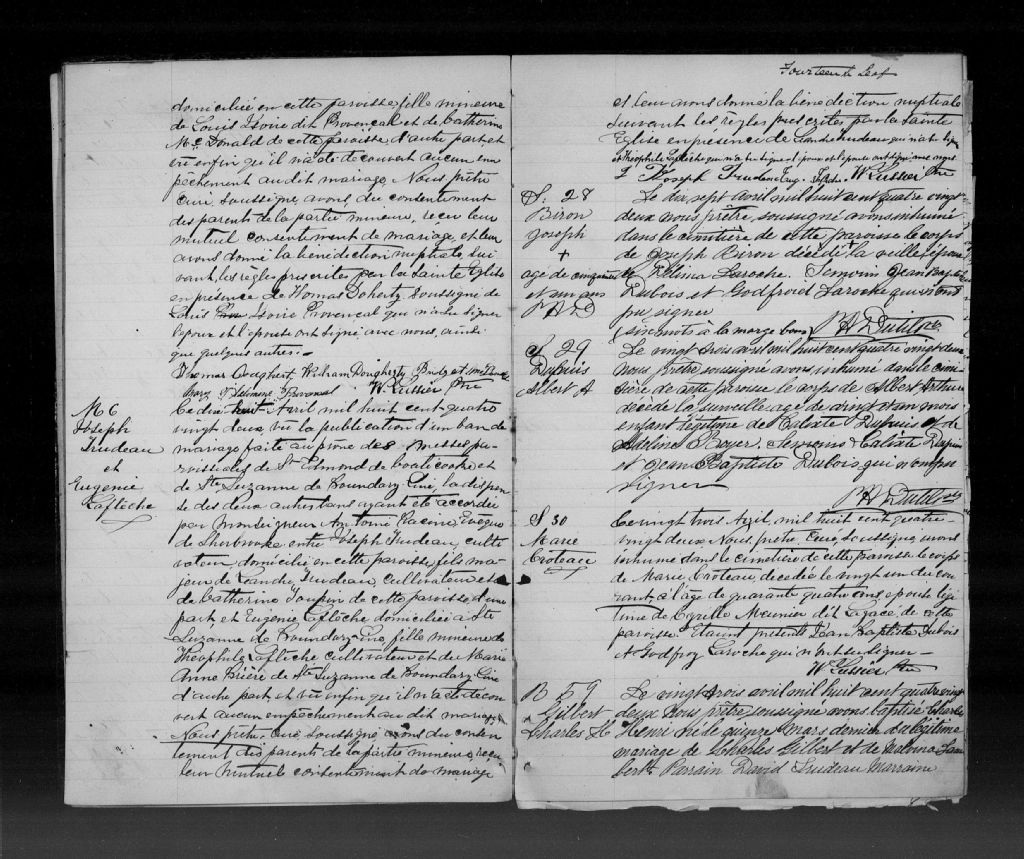 domiciliée en cette paroisse, fille mineure
de Louis Isoire dit Provencal et de Catherine
Mc Donald de cette paroisse d'autre part, et
vu enfin qu'il n'a été découvert aucun em
pêchement au dit mariage, Nous, prêtre
Curé, soussigné, avons, du consentement
des parents de la partie mineure, reçu leur
mutuel consentement de mariage, et leur
avons donné la bénédiction nuptiale, sui
vant les règles prescrites par la Sainte Eglise
en présence de Thomas Doherty soussigné de
Louis Isoire Provencal qui n'a su signer
l'époux et l'épouse ont signé avec nous, ainsi
que quelques autres.-
Thomas Dougherty William Dougherty
Mary Provencal W. Lussier Ptre
M 6
Joseph
Trudeau
et
Eugenie
Laflèche
Le dix huit Avril mil huit cent quatre
vingt deux, vu la publication d'un ban de
mariage faite au prône des messes pa
roissiales de St Edmond de Coaticooke et
de Ste Suzanne de Boundary-Line, la dispen
se des deux autres bans ayant été accordée
par Monseigneur Antoine Racine Evêque
de Sherbrooke entre Joseph Trudeau, culti
vateur, domicilié en cette paroisse, fils ma
jeur de Landri Trudeau, cultivateur et
de Catherine Joupin de cette paroisse, d'une
part et Eugenie Laflèche domiciliée à Ste
Suzanne de Boundary-Line, fille mineure de
Théophile Laflèche cultivateur et de Marie
Anne Brière de Ste Suzanne de Boundary-Line
d'autre part, et vu enfin qu'il n'a été décou
vert aucun empêchement au dit mariage,
Nous, prêtre Curé, soussigné, avons du consen
tement des parents de la partie mineure, reçu
leur mutuel consentement de mariage
Fourteenth Leaf
et leur avons donné la bénédiction nuptiale
suivant les règles prescrites par la Sainte
Eglise en présence de Landri Trudeau qui n'a su signer
et Théophile Laflèche qui n'a su signer, l'époux et l'épouse ont signé avec nous
Joseph Trudeau W Lussier Ptre
S. 28
Biron
Joseph
+
age de cinquante
et un ans
P H D
Le dix sept avril mil huit cent quatre vingt
deux nous prêtre, soussigné avons inhumé
dans le cimetière de cette paroisse le corps
de Joseph Biron décédé la veille + époux
de Zélina Laroche. Témoins Jean Baptiste
Dubois et Godfroid Laroche qui n'ont
pu signer
(six mots à la marge bons) P H Dutilptre
S. 29
Dupuis
Albert A
Le vingt trois avril mil huit cent quatre vingt deux
nous prêtre soussigné avons inhumé dans le cime
tière de cette paroisse le corps de Albert Arthur
décédé la surveille, age de vingt et un mois
enfant légitime de Calixte Dupuis et de
Adeline Boyer. Témoins Calixte Dupuis
et Jean Baptiste Dubois qui n'ont pu
signer
P H Dutilptre
S 30
Marie
Croteau
Le vingt trois Avril, mil huit cent quatre-
vingt deux Nous, prêtre, Curé, soussigné, avons
inhumé dans le cimetière de cette paroisse le corps
de Marie Croteau, décédée le vingt un du cou
rant à l'age de quarante quatre ans, épouse légi
time de Cyrille Meunier dit Lagacé de cette
paroisse. Etaient présents Jean Baptiste Dubois
& Godfroy Laroche qui n'ont su signer-
W Lussier Ptre
B 59
Gilbert
Charles H.
Le vingt trois avril mil huit cent quatre vingt
deux nous prêtre soussigné avons baptisé Charles
Henri né le quinze Mars dernier du légitime
mariage de Charles Gilbert et de Malvina Lam
bert. Parrain David Trudeau Marraine